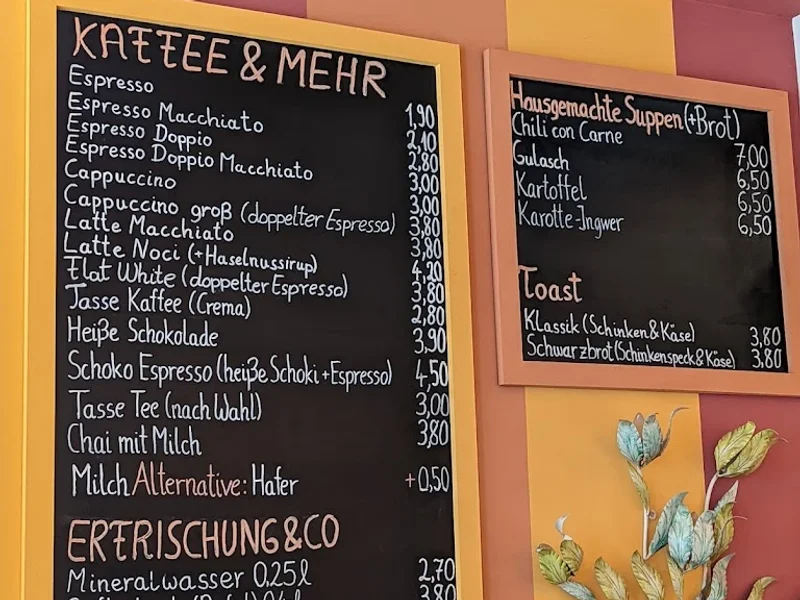 KAFFEE & MEHR
Espresso 1,90
Espresso Macchiato 2,10
Espresso Doppio 2,80
Espresso Doppio Macchiato 3,00
Cappuccino 3,00
Cappuccino groß (doppelter Espresso) 3,80
Latte Macchiato 3,80
Latte Noci (+Haselnussirup) 4,20
Flat White (doppelter Espresso) 3,80
Tasse Kaffee (Crema) 2,80
Heiße Schokolade 3,90
Schoko Espresso (heiße Schoki+Espresso) 4,50
Tasse Tee (nach Wahl) 3,00
Chai mit Milch 3,80
Milch Alternative: Hafer +0,50
ERFRISCHUNG&CO
Mineralwasser 0,25l 2,70
3,80
Hausgemachte Suppen (+Brot)
Chili con Carne 7,00
Gulasch 6,50
Kartoffel 6,50
Karotte-Ingwer 6,50
Toast
Klassik (Schinken & Käse) 3,80
Schwarzbrot (Schinkenspeck & Käse) 3,80